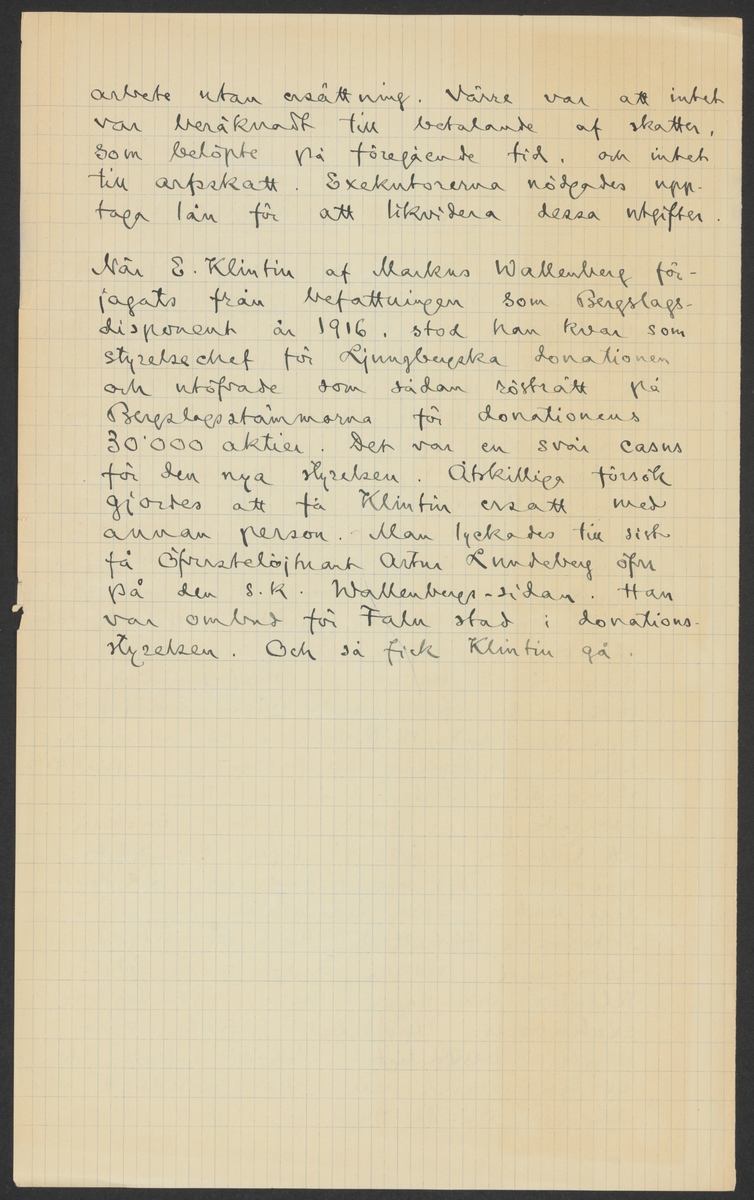 arbete utan ersättning. Värre var att intet
var beräknadt till betalande af skatter,
som belöpte på föregående tid, och intet
till arfsskatt. Exekutorerna nödgades upp-
taga lån för att likvidera dessa utgifter.
När E. Klintin af Markus Wallenberg för-
jagats från befattningen som Bergslags-
disponent år 1916, stod han kvar som
styrelsechef för Ljungbergska donationen
och utöfvade som sådan rösträtt på
Bergslagsstämmorna för donationens
30'000 aktier. Det var en svår casus
för den nya styrelsen. Åtskilliga försök
gjordes att få Klintin ersatt med
annan person. Man lyckades till sist
få Öfverstelöjtnant Artur Lundeberg öfver
på den s.k. Wallenbergs-sidan. Han
var ombud för Falu stad i donations-
styrelsen. Och så fick Klintin gå.